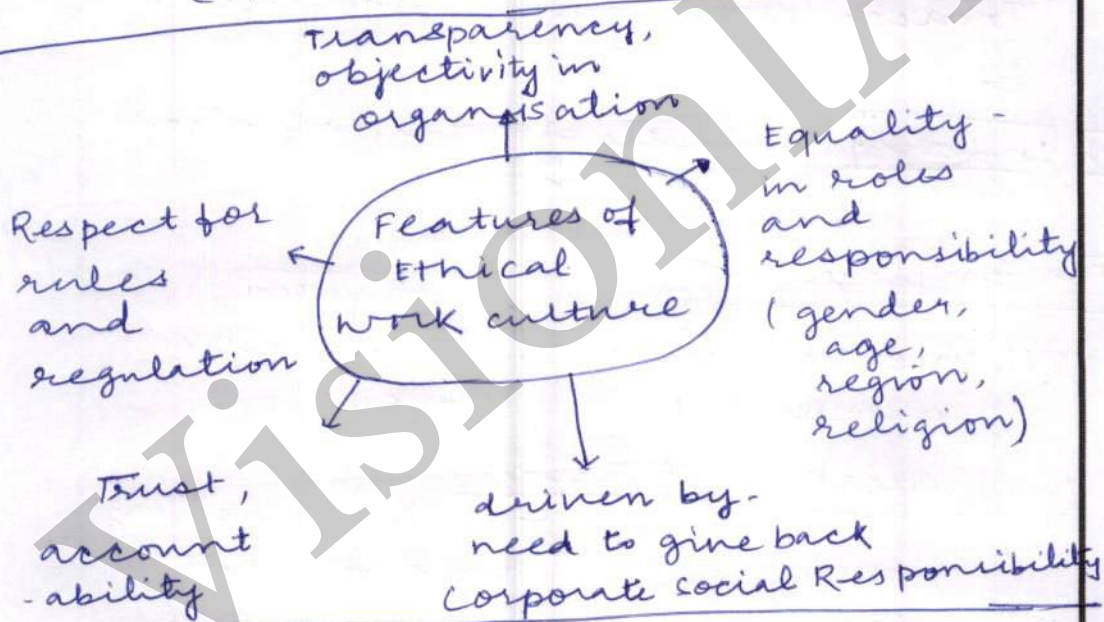 Transparency,
objectivity in
organisation
Equality -
in roles
and
responsibility
(gender,
age,
region,
religion)
Features of
Ethical
work culture
Respect for
rules
and
regulation
Trust,
account
-ability
driven by-
need to give back
Corporate Social Responsibility
VisionIA